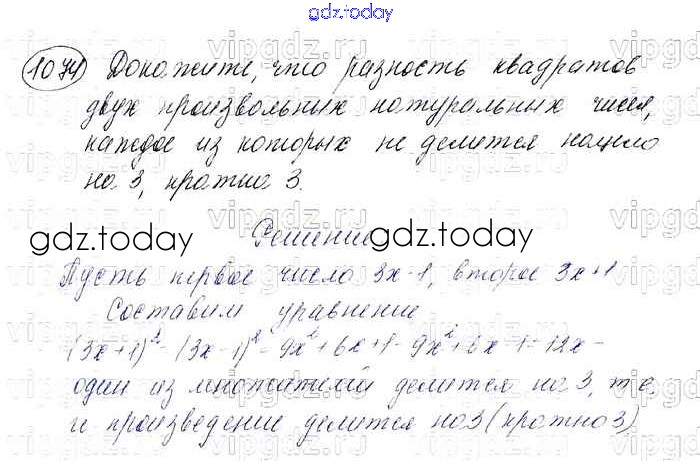 gdz.today
1074 Докажите, что разность квадратов
двух произвольных натуральных чисел,
каждое из которых не делится нацело
на 3, кратна 3.
Решение
gdz.today gdz.today
Пусть первое число 3x-1, второе 3x+1
Составим уравнение
(3x+1)²-(3x-1)²=9x²+6x+1-9x²+6x-1=12x-
один из множителей делится на 3, т.е.
и произведение делится на 3 (кратно 3)